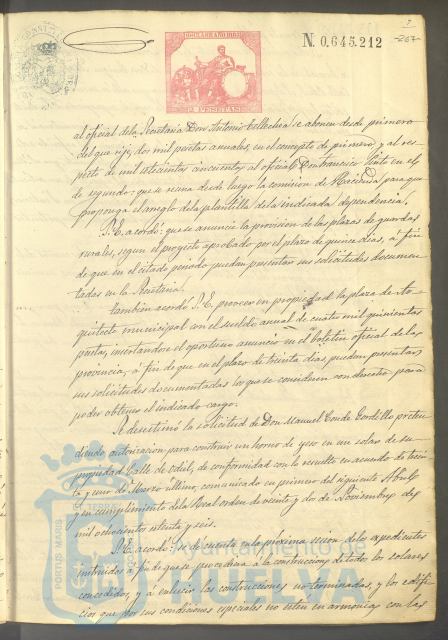 N. 0,645,212
267
2 PESETAS
al oficial de la Secretaría Don Antonio se abonen desde primero
del que rije, dos mil pesetas anuales, en el concepto de primero, y al res-
pecto de mil setecientas cincuenta, al oficial Don Francisco en el
de segundo: que se reuna desde luego la comision de Hacienda para que
proponga el arreglo de la plantilla de la indicada dependencia.
S. E. acordó: que se anuncie la provision de las plazas de guardas
rurales, segun el proyecto aprobado por el plazo de quince dias, á fin
de que en el citado periodo puedan presentar sus solicitudes documen-
tadas en la Secretaría.
Tambien acordó S. E. proveer en propiedad la plaza de Ar-
quitecto municipal con el sueldo anual de cuatro mil quinientas
pesetas, insertandose el oportuno anuncio en el boletin oficial de la
provincia, á fin de que en el plazo de treinta dias, puedan presentar
sus solicitudes documentadas los que se consideren con derecho para
poder obtener el indicado cargo.
Se desestimó la solicitud de Don Manuel Conde Gordillo preten-
diendo autorizacion para construir un horno de yeso en un solar de su
propiedad Calle de Odiel, de conformidad con lo resuelto en acuerdo de trein-
ta y uno de Marzo último, comunicado en primero del siguiente Abril
y en cumplimiento de la Real orden de veinte y dos de Noviembre de
mil ochocientos setenta y seis.
S. E. acordó: se dé cuenta en la próxima sesion de los expedientes
instruidos á fin de que se procediera á la construccion de todos los solares
concedidos, y á enlucir las construcciones no terminadas, y los edifi-
cios que por sus condiciones especiales no estén en armonia con las
Ayuntamiento de
HUELVA
PORTUS MARIS